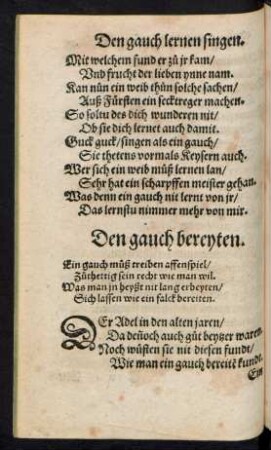 Den gauch lernen singen.
Mit welchem fund er zů jr kam/
Vnd frucht der lieben ynne nam.
Kan nůn ein weib thůn solche sachen/
Auß Fürsten ein secktreger machen.
So soltu des dich wunderen nit/
Ob sie dich lernet auch damit.
Guck guck/singen als ein gauch/
Sie thetens vormals Keysern auch.
Wer sich ein weib můß lernen lan/
Sehr hat ein scharpffen meister gehan.
Was denn ein gauch nit lernt von jr/
Das lernstu nimmer mehr von mir.
Den gauch bereyten.
Ein gauch můß treiben affenspiel/
Zůthettig sein recht wie man wil.
Was man jn heyßt nit lang erbeyten/
Sich lassen wie ein falck bereiten.
DEr Adel in den alten jaren/
Da deñoch auch gůt beytzer waren
Noch wůsten sie nit diesen fundt/
Wie man ein gauch bereitē kundt.
Ein